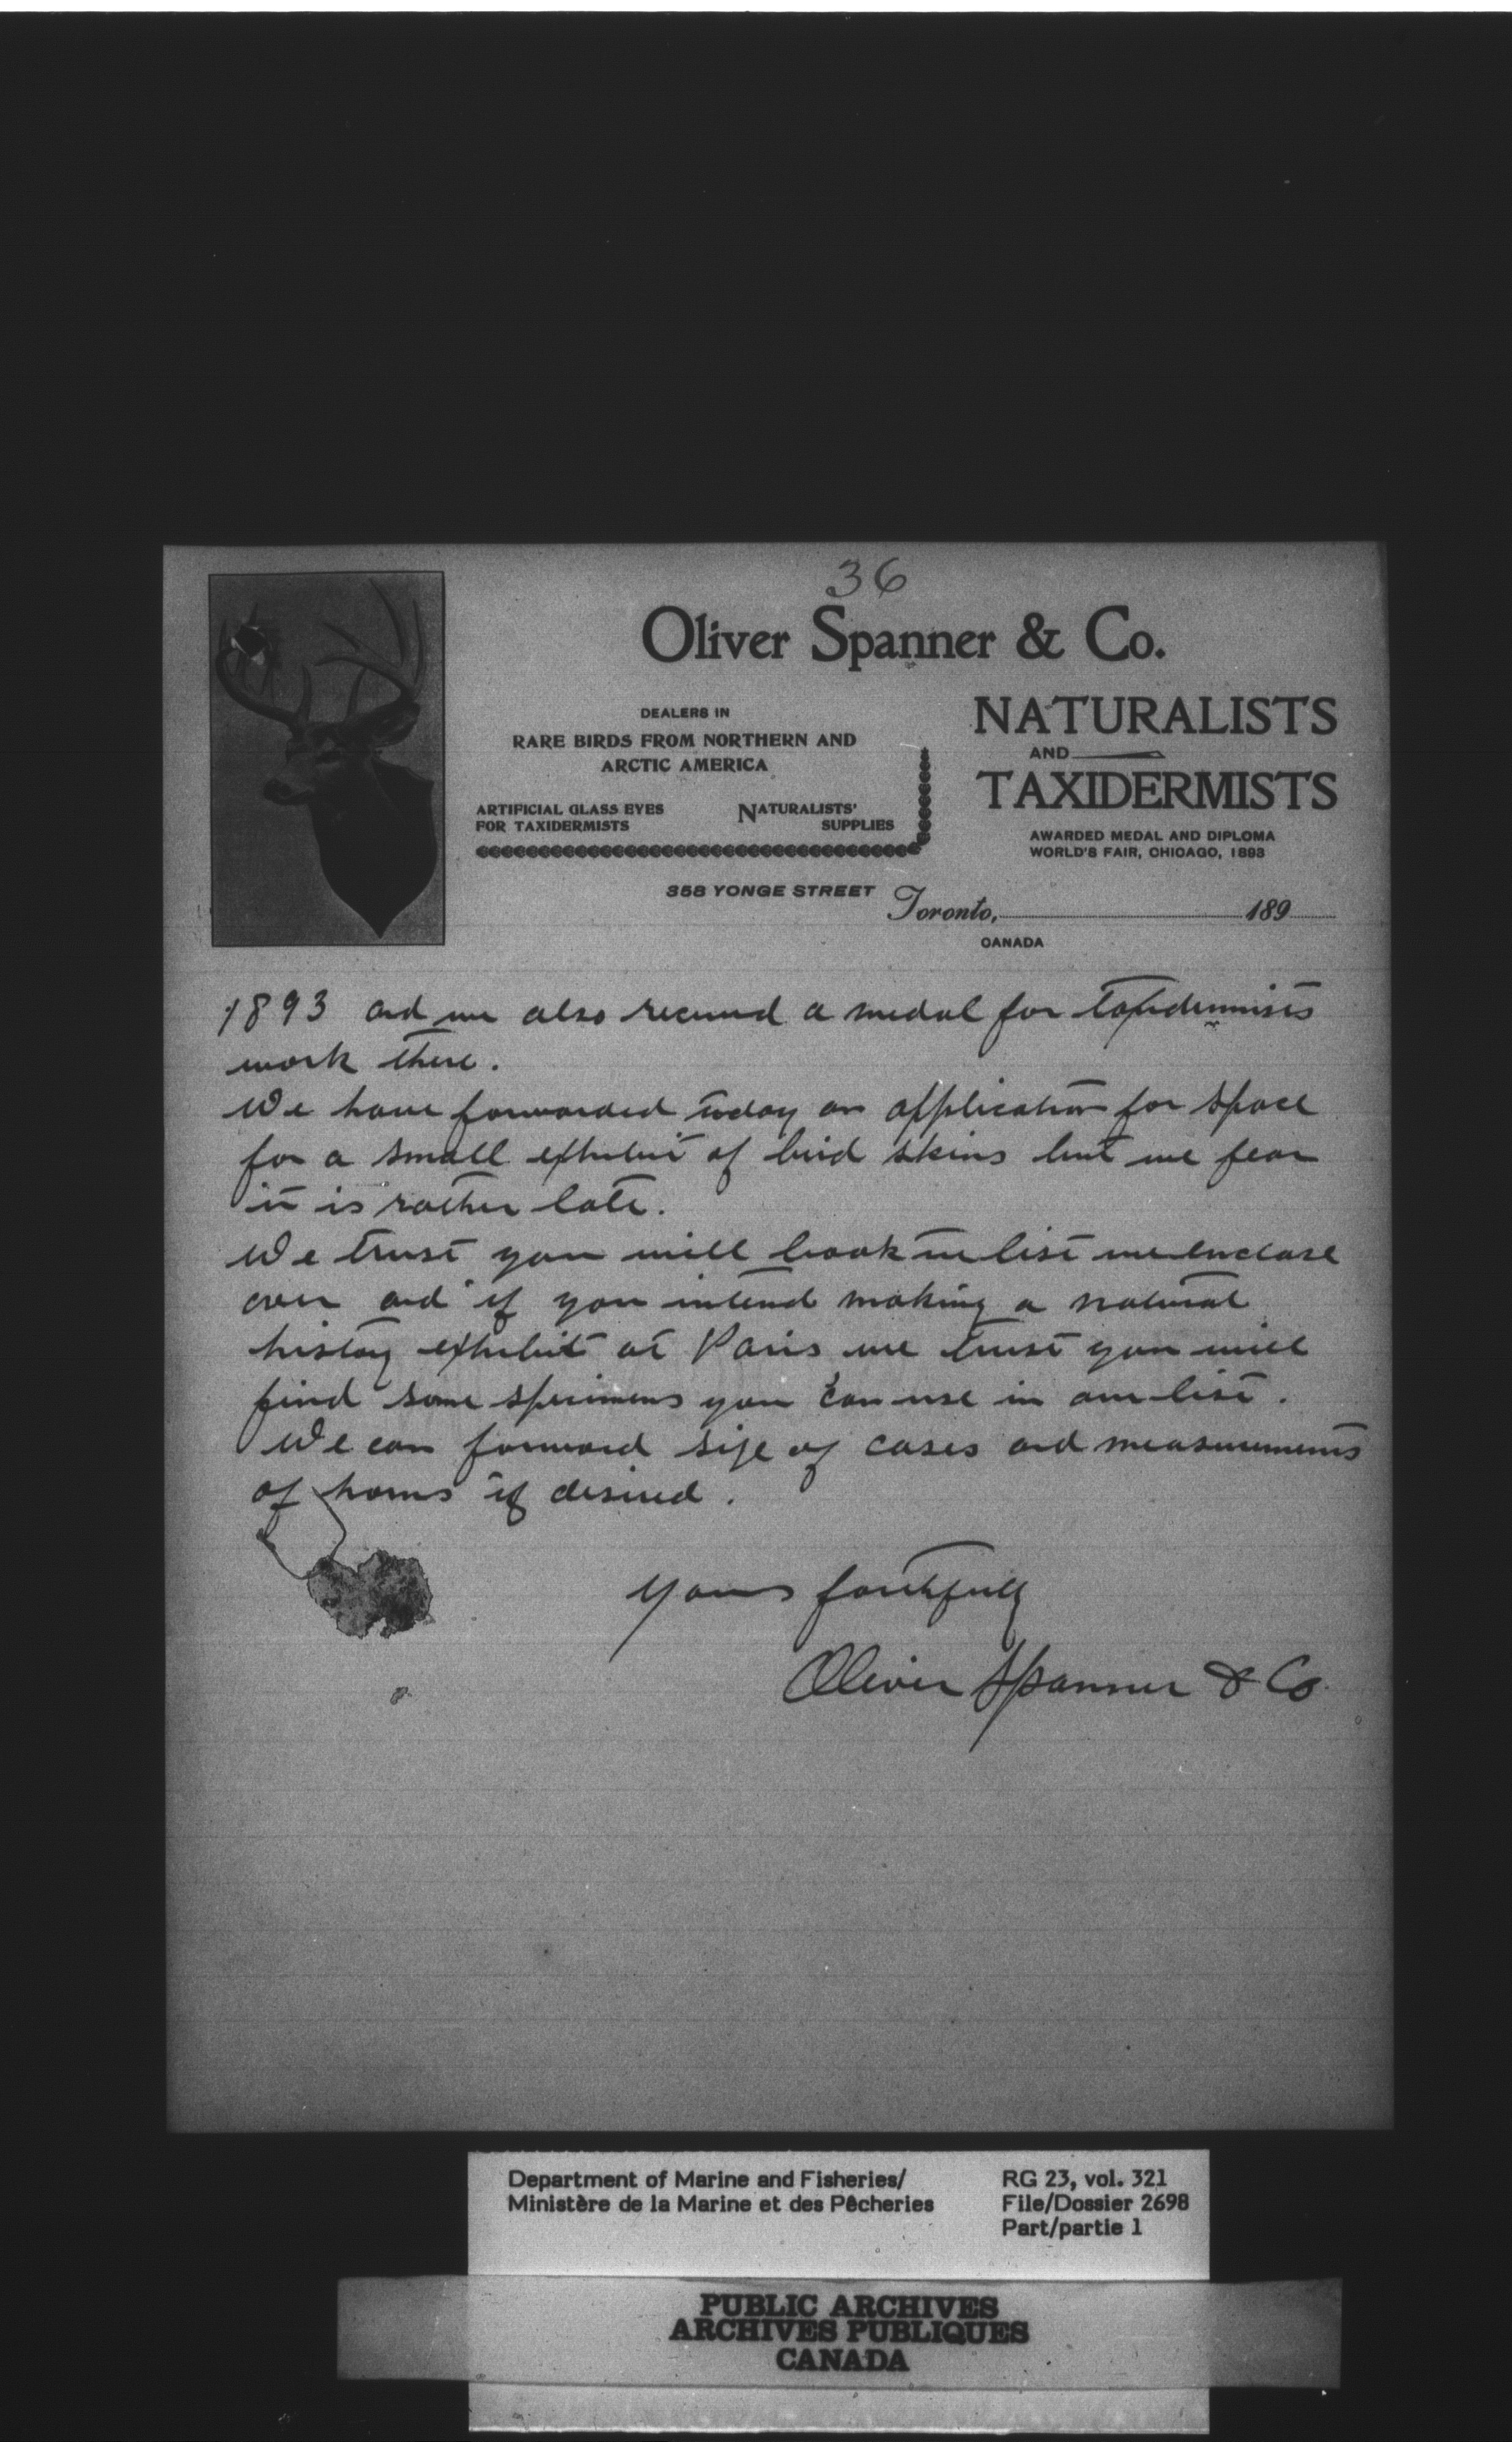 36
Oliver Spanner & Co.
DEALERS IN
RARE BIRDS FROM NORTHERN AND
ARCTIC AMERICA
ARTIFICIAL GLASS EYES
FOR TAXIDERMISTS
NATURALISTS'
SUPPLIES
NATURALISTS
AND
TAXIDERMISTS
AWARDED MEDAL AND DIPLOMA
WORLD'S FAIR, CHICAGO, 1893
358 YONGE STREET
Toronto, 189
CANADA
1893 and we also received a medal for taxidermists
work there.
We have forwarded today an application for space
for a small exhibit of bird skins but we fear
it is rather late.
We trust you will look the list we enclose
over and if you intend making a natural
history exhibit at Paris we trust you will
find some specimens you can use in our list.
We can forward size of cases and measurements
of horns if desired.
Yours faithfully
Oliver Spanner & Co.
Department of Marine and Fisheries/
Ministère de la Marine et des Pêcheries
RG 23, vol. 321
File/Dossier 2698
Part/partie 1
PUBLIC ARCHIVES
ARCHIVES PUBLIQUES
CANADA